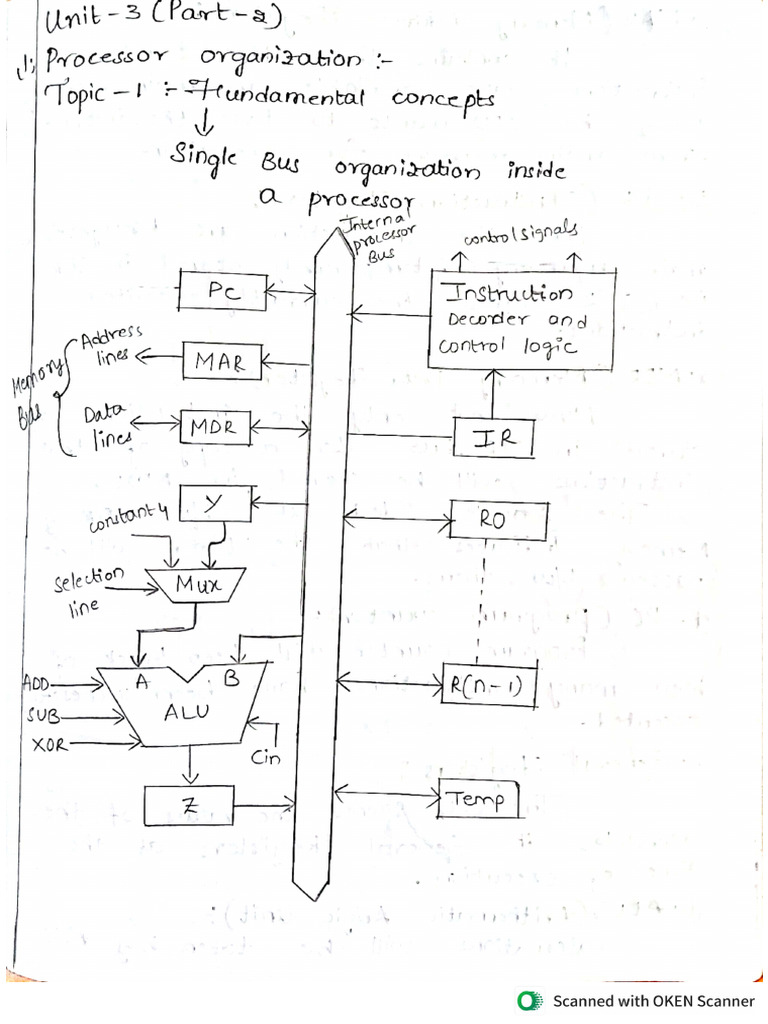 Unit-3 (Part-2)
(1); Processor organization :-
Topic-1 :- Fundamental concepts
Single Bus organization inside
a processor
Internal
processor
Bus
control signals
PC
Instruction
Decorder and
control logic
Address
lines
MAR
Memory
Bus
Data
lines
MDR
IR
Y
constant 4
RO
selection
line
Mux
ADD
A
B
R(n-1)
SUB
ALU
XOR
Cin
Z
Temp
Scanned with OKEN Scanner